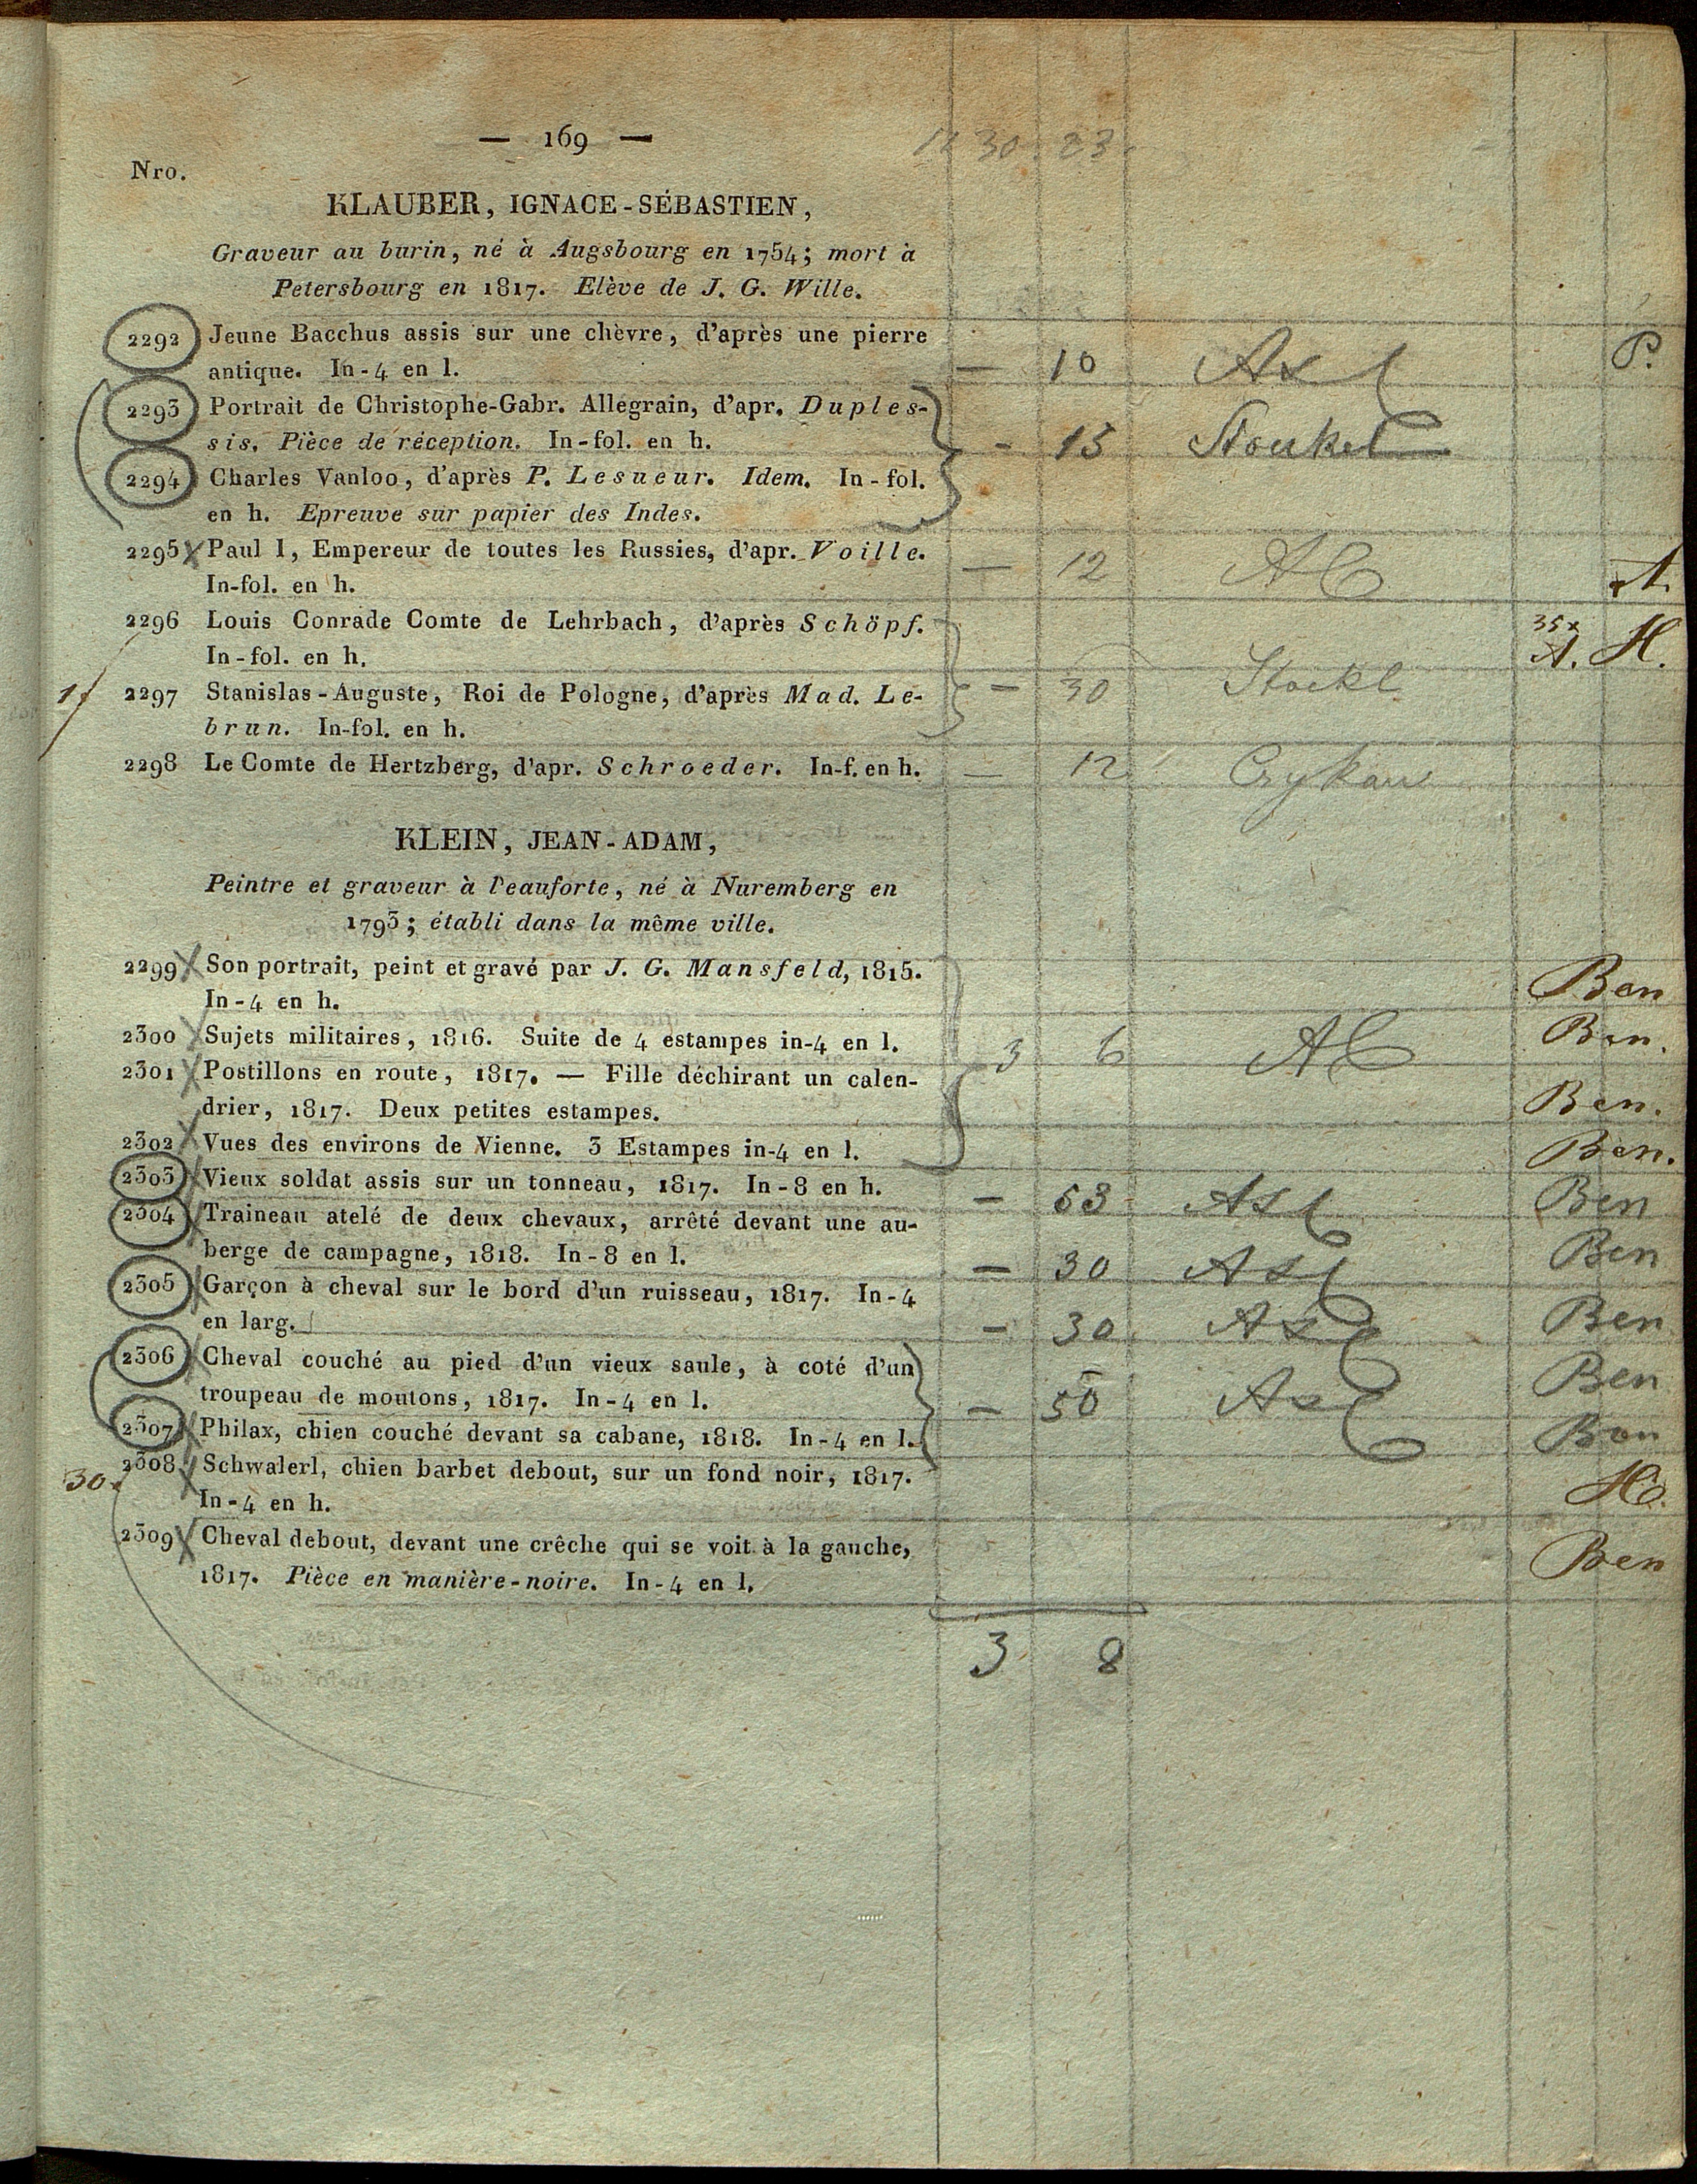 — 169 —
Nro.
KLAUBER, IGNACE-SÉBASTIEN,
Graveur au burin, né à Augsbourg en 1754; mort à
Petersbourg en 1817. Elève de J. G. Wille.
2292 Jeune Bacchus assis sur une chèvre, d'après une pierre
antique. In-4 en l. — 10 P.
2293 Portrait de Christophe-Gabr. Allegrain, d'apr. Duples-
sis. Pièce de réception. In-fol. en h. - 15
2294 Charles Vanloo, d'après P. Lesueur. Idem. In-fol.
en h. Epreuve sur papier des Indes.
2295 Paul I, Empereur de toutes les Russies, d'apr. Voille.
In-fol. en h. — 12 A.
2296 Louis Conrade Comte de Lehrbach, d'après Schöpf.
In-fol. en h. 35x A. H.
2297 Stanislas-Auguste, Roi de Pologne, d'après Mad. Le- - 30 Stockl
brun. In-fol. en h.
2298 Le Comte de Hertzberg, d'apr. Schroeder. In-f. en h. — 12
KLEIN, JEAN-ADAM,
Peintre et graveur à l'eauforte, né à Nuremberg en
1793; établi dans la même ville.
2299 Son portrait, peint et gravé par J. G. Mansfeld, 1815. Ben
In-4 en h.
2300 Sujets militaires, 1816. Suite de 4 estampes in-4 en l. 3 6 Ben.
2301 Postillons en route, 1817. — Fille déchirant un calen-
drier, 1817. Deux petites estampes. Ben.
2302 Vues des environs de Vienne. 3 Estampes in-4 en l. Ben.
2303 Vieux soldat assis sur un tonneau, 1817. In-8 en h. - Ben
2304 Traineau atelé de deux chevaux, arrêté devant une au-
berge de campagne, 1818. In-8 en l. — 30 Ben
2305 Garçon à cheval sur le bord d'un ruisseau, 1817. In-4
en larg. - 30 Ben
2306 Cheval couché au pied d'un vieux saule, à coté d'un
troupeau de moutons, 1817. In-4 en l. - 50 Ben
2307 Philax, chien couché devant sa cabane, 1818. In-4 en l. Ben
2308 Schwalerl, chien barbet debout, sur un fond noir, 1817.
In-4 en h.
2309 Cheval debout, devant une crêche qui se voit à la gauche,
1817. Pièce en manière-noire. In-4 en l. Ben
3 8